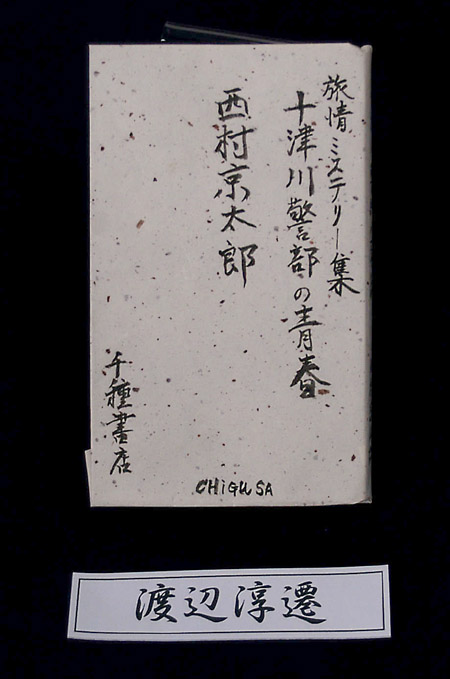 旅情ミステリー集
十津川警部の青春
西村京太郎
千種書店
CHIGUSA
渡辺淳遷